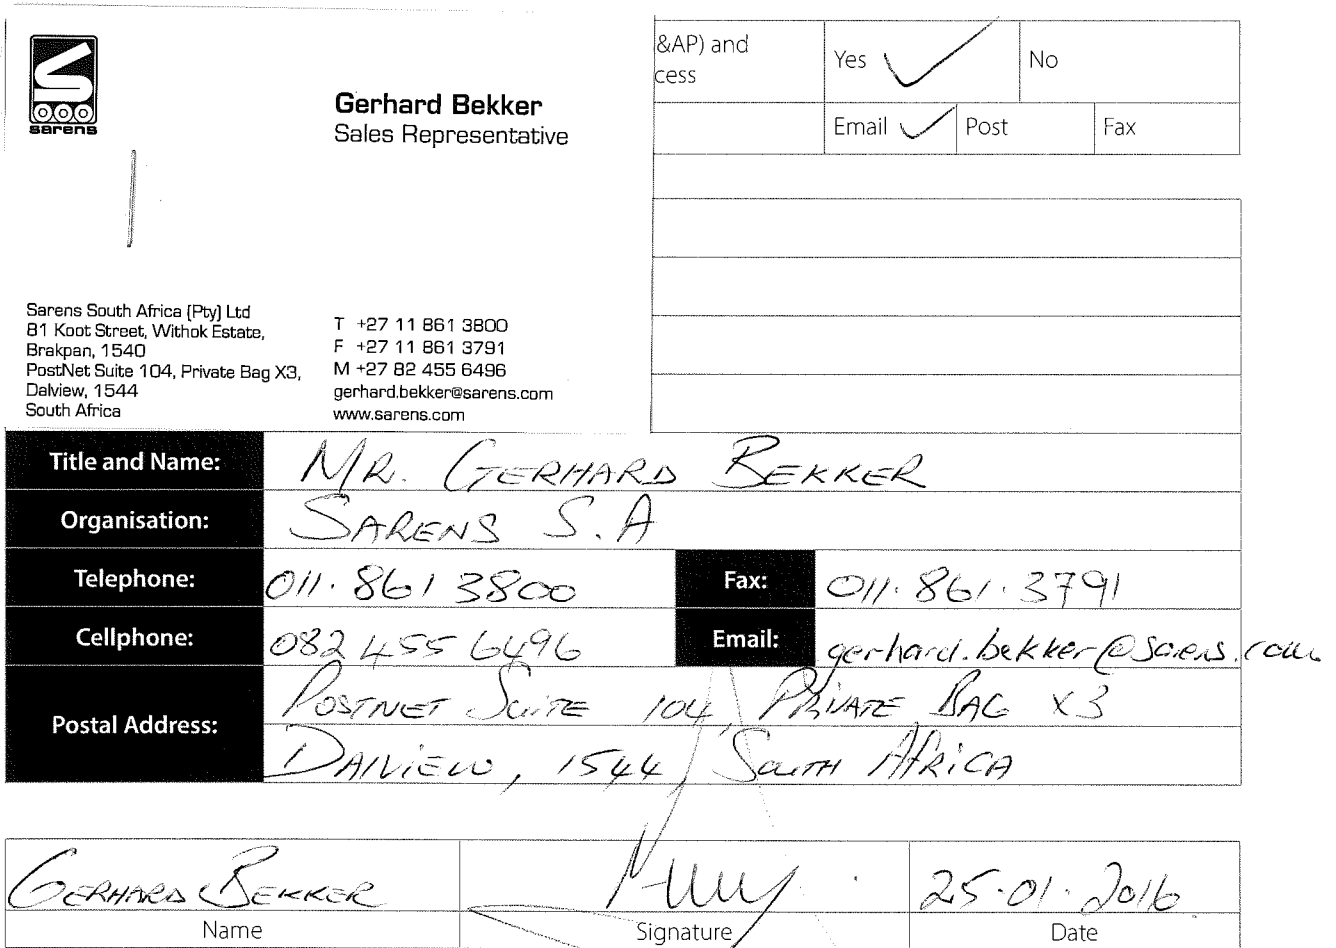 sarens
Gerhard Bekker
Sales Representative
&AP) and
cess
Yes No
Email Post Fax
Sarens South Africa (Pty) Ltd
81 Koot Street, Withok Estate,
Brakpan, 1540
PostNet Suite 104, Private Bag X3,
Dalview, 1544
South Africa
T +27 11 861 3800
F +27 11 861 3791
M +27 82 455 6496
gerhard.bekker@sarens.com
www.sarens.com
Title and Name: MR. GERHARD BEKKER
Organisation: SARENS S.A
Telephone: 011. 861 3800 Fax: 011. 861. 3791
Cellphone: 082 455 6496 Email: gerhard.bekker@sarens.com
Postal Address: POSTNET SUITE 104, PRIVATE BAG X3
DALVIEW, 1544, SOUTH AFRICA
GERHARD BEKKER 25.01.2016
Name Signature Date